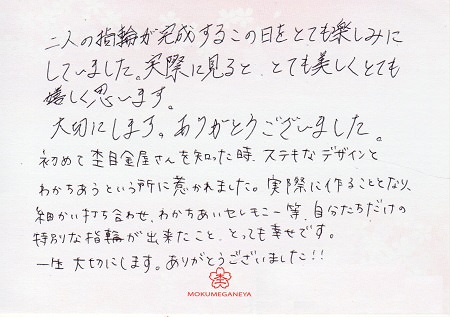 二人の指輪が完成するこの日をとても楽しみに
していました。実際に見ると、とても美しくとても
嬉しく思います。
大切にします。ありがとうございました。
初めて杢目金屋さんを知った時、ステキなデザインと
わかちあうという所に惹かれました。実際に作ることとなり、
細かい打ち合わせ、わかちあいセレモニー等、自分たちだけの
特別な指輪が出来たこと、とっても幸せです。
一生大切にします。ありがとうございました!!
MOKUMEGANEYA